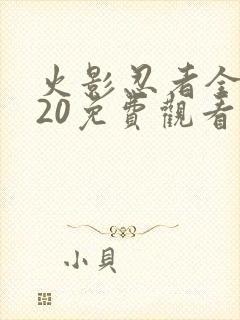 火影忍者全
20免費觀看
小貝